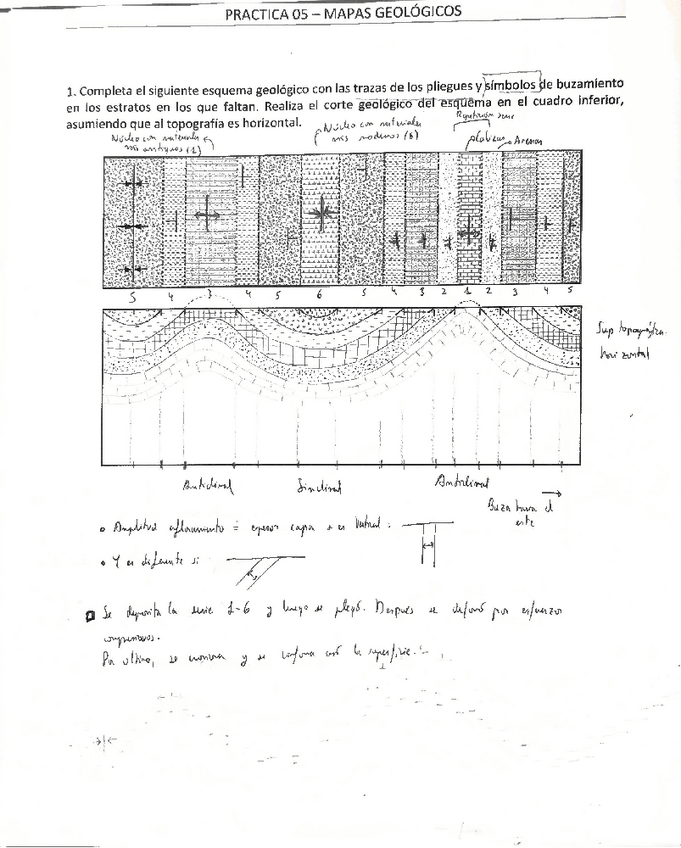 PRACTICA 05 – MAPAS GEOLÓGICOS
1. Completa el siguiente esquema geológico con las trazas de los pliegues y símbolos de buzamiento
en los estratos en los que faltan. Realiza el corte geológico del esquema en el cuadro inferior,
asumiendo que al topografía es horizontal.
Repetición serie
Núcleo con materiales
más antiguos (1)
Núcleo con materiales
más modernos (6)
Arenas
5 4 3 4 5 6 5 4 3 2 1 2 3 4 5
Sup topográfica
horizontal
Anticlinal Sinclinal Anticlinal
Buza hacia el
este
Amplitud afloramiento = espesor capa si es vertical:
Y es diferente si:
Se deposita la serie 1-6 y luego se plegó. Después se deformó por esfuerzos
compresivos.
Por último, se erosiona y se conforma así la superficie.